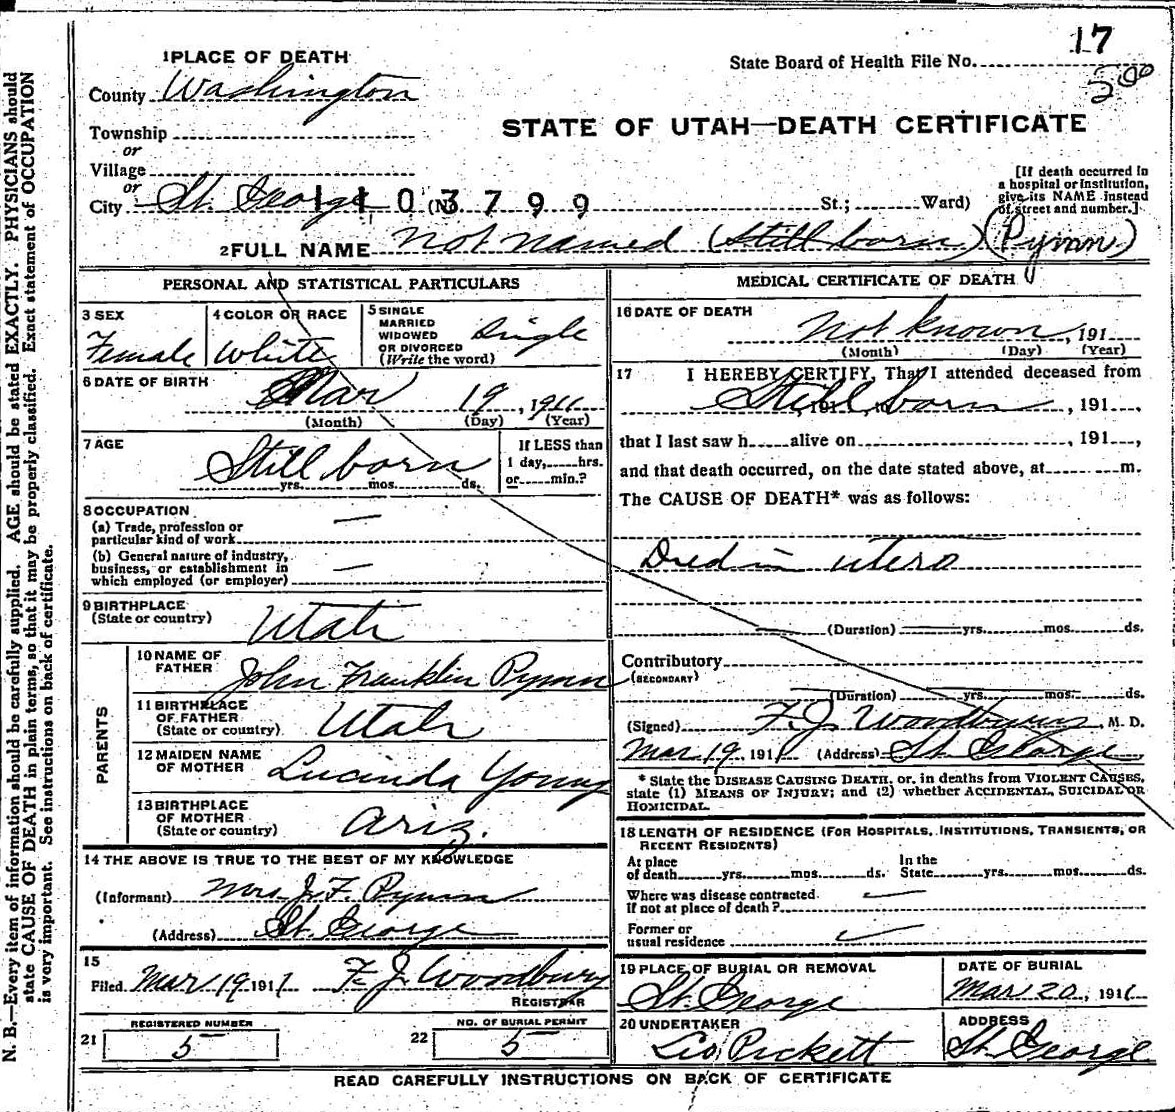 17
State Board of Health File No.
200
1 PLACE OF DEATH
County Washington
STATE OF UTAH—DEATH CERTIFICATE
Township
or
Village
or
City St. George (No. St.; Ward)
1103799
[If death occurred in
a hospital or institution,
give its NAME instead
of street and number.]
2 FULL NAME Not named (Still born) (Pymm)
PERSONAL AND STATISTICAL PARTICULARS
3 SEX
Female
4 COLOR OR RACE
White
5 SINGLE
MARRIED
WIDOWED
OR DIVORCED
(Write the word)
Single
6 DATE OF BIRTH
Mar 19, 1911
(Month) (Day) (Year)
7 AGE
Still born
yrs. mos. ds.
If LESS than
1 day, hrs.
or min.?
8 OCCUPATION
(a) Trade, profession or
particular kind of work —
(b) General nature of industry,
business, or establishment in
which employed (or employer) —
9 BIRTHPLACE
(State or country) Utah
PARENTS
10 NAME OF
FATHER John Franklin Pymm
11 BIRTHPLACE
OF FATHER
(State or country) Utah
12 MAIDEN NAME
OF MOTHER Lucinda Young
13 BIRTHPLACE
OF MOTHER
(State or country) Ariz.
14 THE ABOVE IS TRUE TO THE BEST OF MY KNOWLEDGE
(Informant) Mrs J. F. Pymm
(Address) St. George
15
Filed Mar 19 1911 F. J. Woodbury
REGISTRAR
21 REGISTERED NUMBER
5
22 NO. OF BURIAL PERMIT
5
MEDICAL CERTIFICATE OF DEATH
16 DATE OF DEATH
Not known, 191
(Month) (Day) (Year)
17 I HEREBY CERTIFY, That I attended deceased from
Still born, 191 ,
that I last saw h alive on , 191 ,
and that death occurred, on the date stated above, at m.
The CAUSE OF DEATH* was as follows:
Died in utero
(Duration) yrs. mos. ds.
Contributory
(SECONDARY)
(Duration) yrs. mos. ds.
(Signed) F. J. Woodbury, M. D.
Mar 19, 1911 (Address) St. George
* State the DISEASE CAUSING DEATH, or, in deaths from VIOLENT CAUSES,
state (1) MEANS OF INJURY; and (2) whether ACCIDENTAL, SUICIDAL OR
HOMICIDAL.
18 LENGTH OF RESIDENCE (FOR HOSPITALS, INSTITUTIONS, TRANSIENTS, OR
RECENT RESIDENTS)
At place
of death yrs. mos. ds.
In the
State yrs. mos. ds.
Where was disease contracted
If not at place of death?
Former or
usual residence
19 PLACE OF BURIAL OR REMOVAL
St. George
DATE OF BURIAL
Mar 20, 1911
20 UNDERTAKER
Leo Pickett
ADDRESS
St. George
READ CAREFULLY INSTRUCTIONS ON BACK OF CERTIFICATE
N. B.—Every item of information should be carefully supplied. AGE should be stated EXACTLY. PHYSICIANS should
state CAUSE OF DEATH in plain terms, so that it may be properly classified. Exact statement of OCCUPATION
is very important. See instructions on back of certificate.